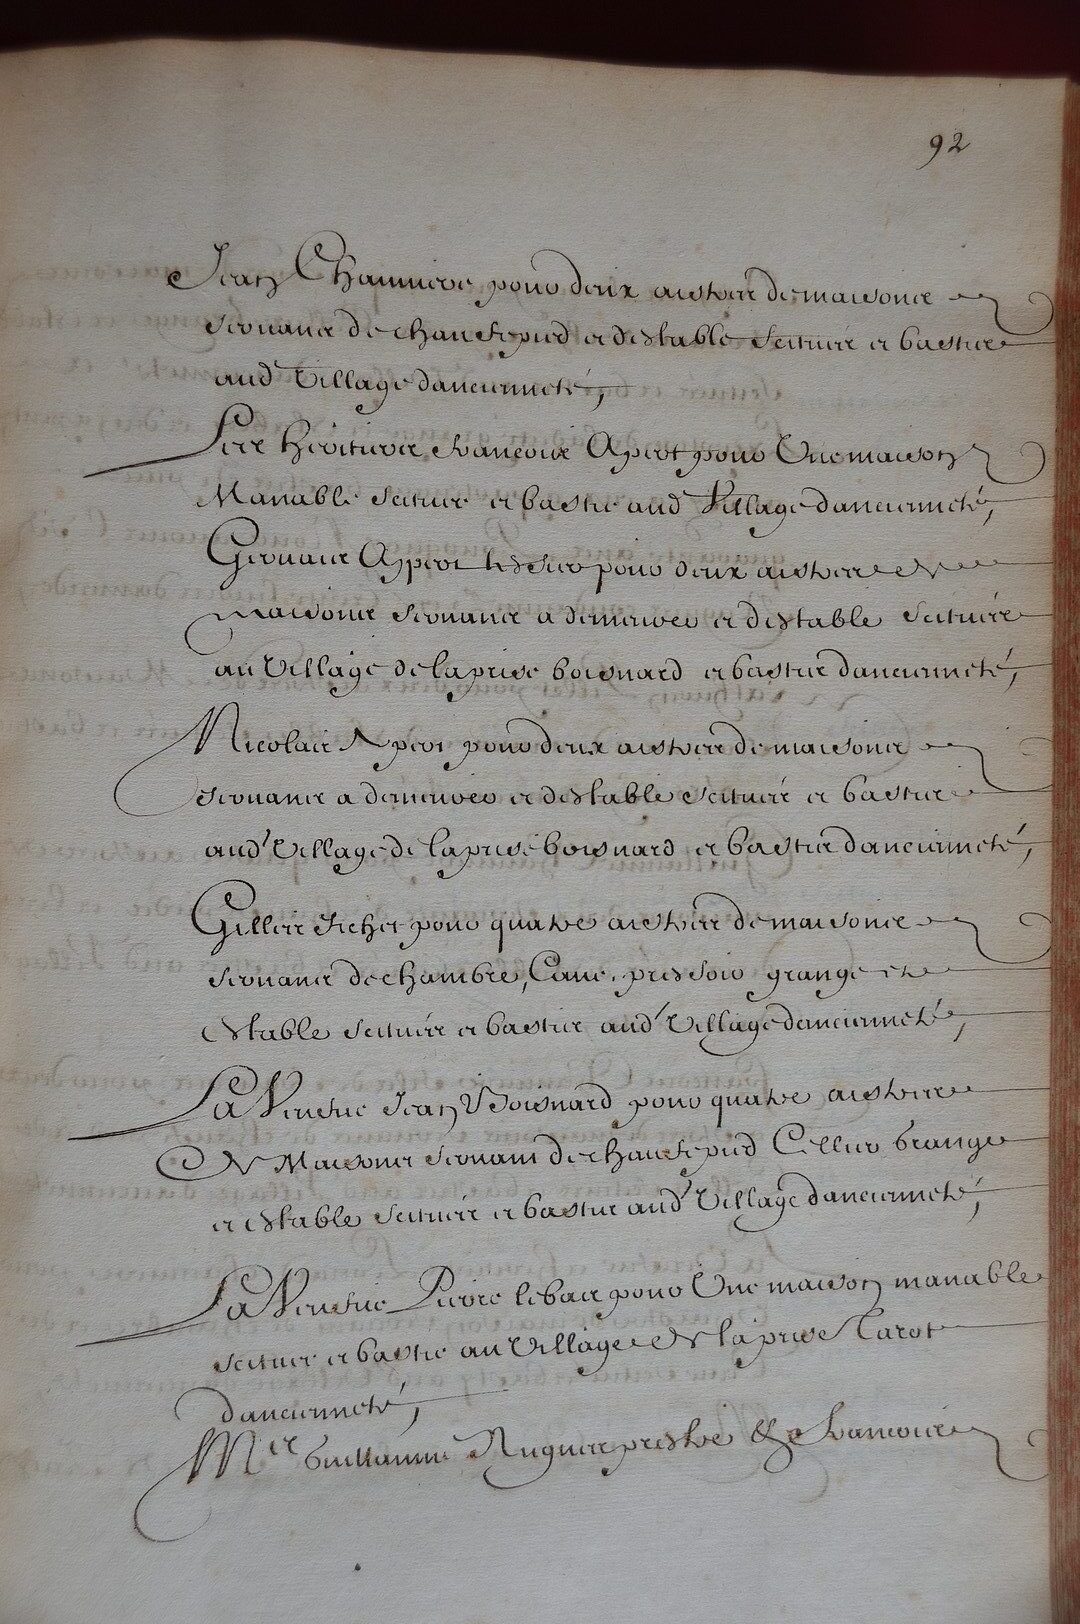 92
Jean Chauniere pour deux aistres de maisons
servans de chaufepied et destable scituée et bastie
aud Village dancienneté,
Les heritiers francois Apert pour Une maison
Manable scituee et bastie aud Village dancienneté,
Gervais Apert pour deux aistres de
maisons servans a demeurer et destable scituées
au Village de la prise boisnard et basties dancienneté,
Nicolas Apert pour deux aistres de maisons
servans a demeurer et destable scituées et basties
aud Village de la prise boisnard et basties dancienneté,
Gilles richer pour quatre aistres de maisons
servans de chambre, Cave, pressoir grange et
estable scituées et basties aud Village dancienneté,
La Veufue Jean Boisnard pour quatre aistres
de Maisons servans de chaufepied Cellier Grange
et estable scituées et basties aud Village dancienneté,
La Veufue Pierre lebas pour Une maison manable
scituee et bastie au Village de la prise Tarot
dancienneté,
Mes Guillaume prestre & francois